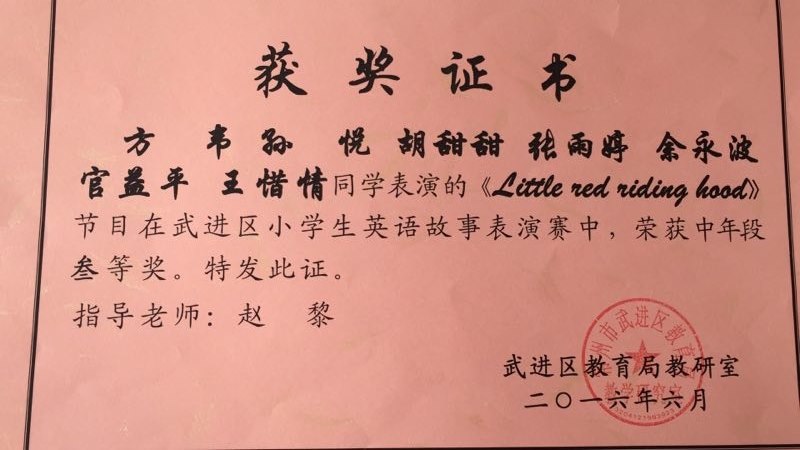 获奖证书
方 韦 孙 悦 胡甜甜 张雨婷 余永波
官益平 王惜情同学表演的《Little red riding hood》
节目在武进区小学生英语故事表演赛中，荣获中年段
叁等奖。特发此证。
指导老师：赵 黎
武进区教育局教研室
二〇一六年六月
常州市武进区教育局
教学研究室